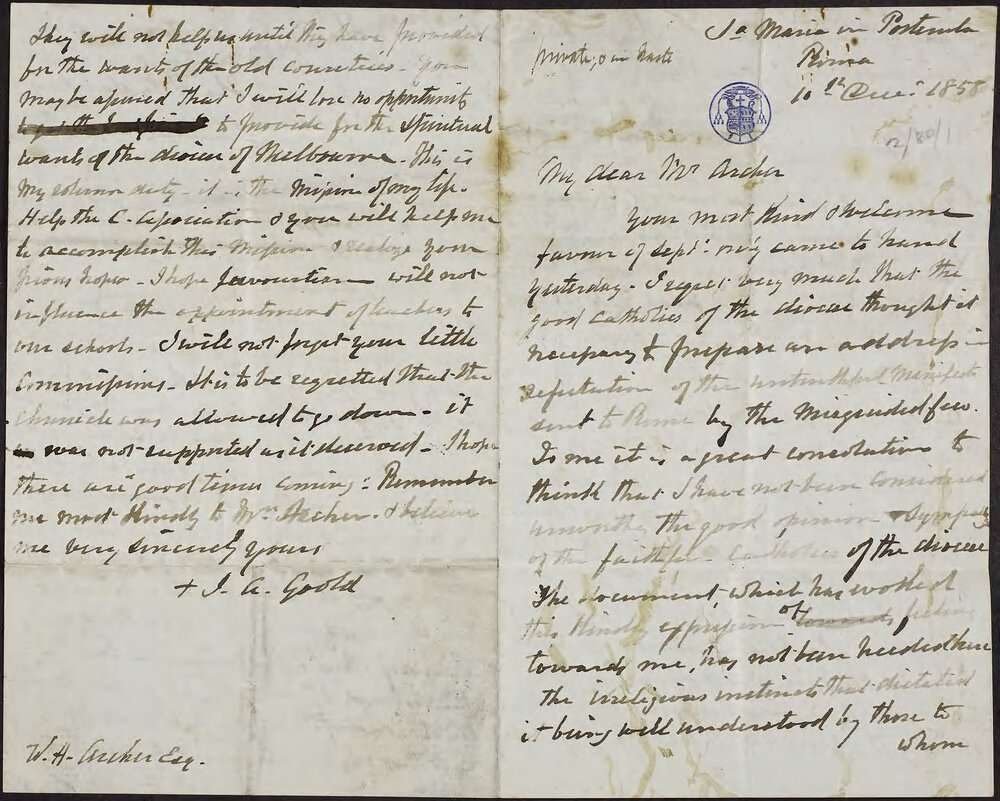 private, & in haste
Sa Maria in Posterula
Roma
10th Decr 1858
2/80/1
My dear Mr Archer
Your most kind & welcome
favour of Septr only came to hand
yesterday. I regret very much that the
good catholics of the diocese thought it
necessary to prepare an address in
refutation of the untruthful Manifesto
sent to Rome by the Misguided few.
To me it is a great consolation to
think that I have not been considered
unworthy the good opinion & sympathy
of the faithful catholics of the diocese
The document which has evoked
this kindly expression of towards feeling
towards me, has not been heeded here
the irreligious instincts that dictated
it being well understood by those to
whom
They will not help us until they have provided
for the wants of the old countries. You
may be assured that I will lose no opportunity
to provide for the spiritual
wants of the diocese of Melbourne. This is
my solemn duty - it is the Mission of my life.
Help the C. Association & you will help me
to accomplish this Mission & realize your
pious hopes. I hope favouritism will not
influence the appointment of teachers to
our schools. I will not forget your little
Commissions. It is to be regretted that the
Chronicle was allowed to go down - it
was not supported as it deserved. I hope
there are good times coming: Remember
me most kindly to Mrs Archer & believe
me very sincerely yours
+ J. A. Goold
W. H. Archer Esq.